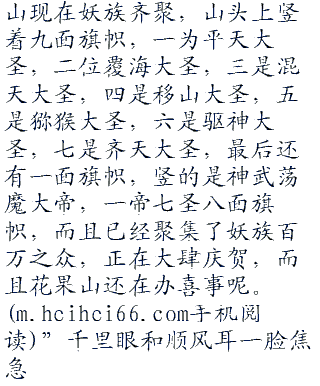 山现在妖族齐聚，山头上竖
着九面旗帜，一为平天大
圣，二位覆海大圣，三是混
天大圣，四是移山大圣，五
是猕猴大圣，六是驱神大
圣，七是齐天大圣，最后还
有一面旗帜，竖的是神武荡
魔大帝，一帝七圣八面旗
帜，而且已经聚集了妖族百
万之众，正在大肆庆贺，而
且花果山还在办喜事呢。
(m.hcihci66.com手机阅
读)”千里眼和顺风耳一脸焦
急